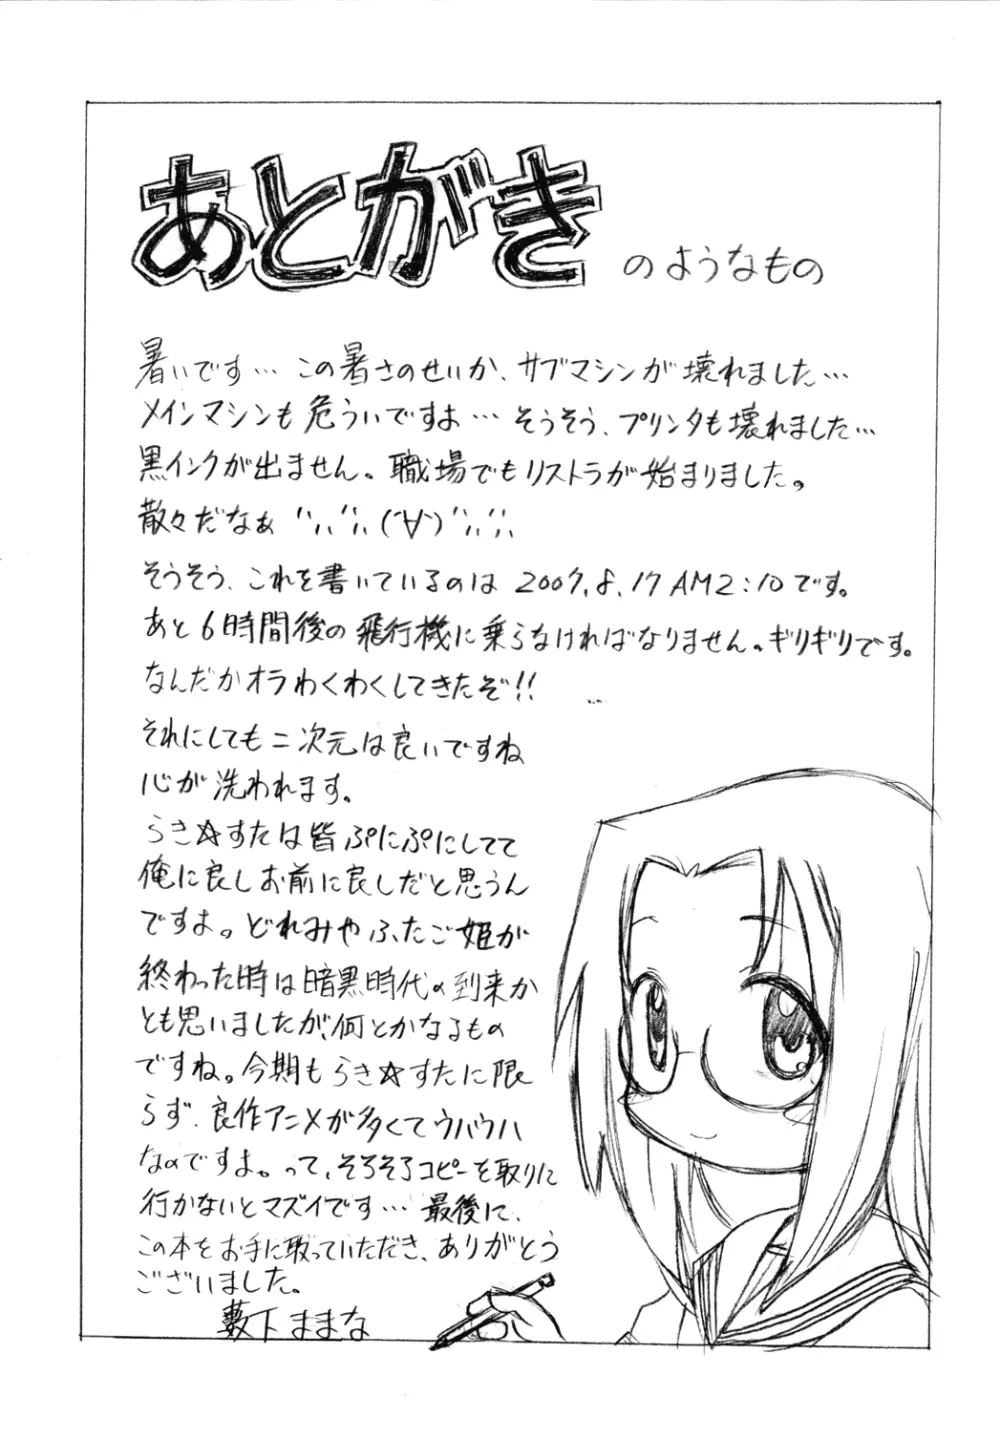 あとがき のようなもの
暑いです… この暑さのせいか、サブマシンが壊れました…
メインマシンも危ういですよ… そうそう、プリンタも壊れました…
黒インクが出ません。職場でもリストラが始まりました。
散々だなぁ
そうそう、これを書いているのは 2007.8.17 AM2:10です。
あと6時間後の飛行機に乗らなければなりません。ギリギリです。
なんだかオラわくわくしてきたぞ!!
それにしても二次元は良いですね
心が洗われます。
らき☆すたは皆ぷにぷにしてて
俺に良しお前に良しだと思うん
ですよ。どれみやふたご姫が
終わった時は暗黒時代の到来か
とも思いましたが、何とかなるもの
ですね。今期もらき☆すたに限
らず、良作アニメが多くてウハウハ
なのですよ。って、そろそろコピーを取りに
行かないとマズイです… 最後に、
この本をお手に取っていただき、ありがとう
ございました。
藪下ままな